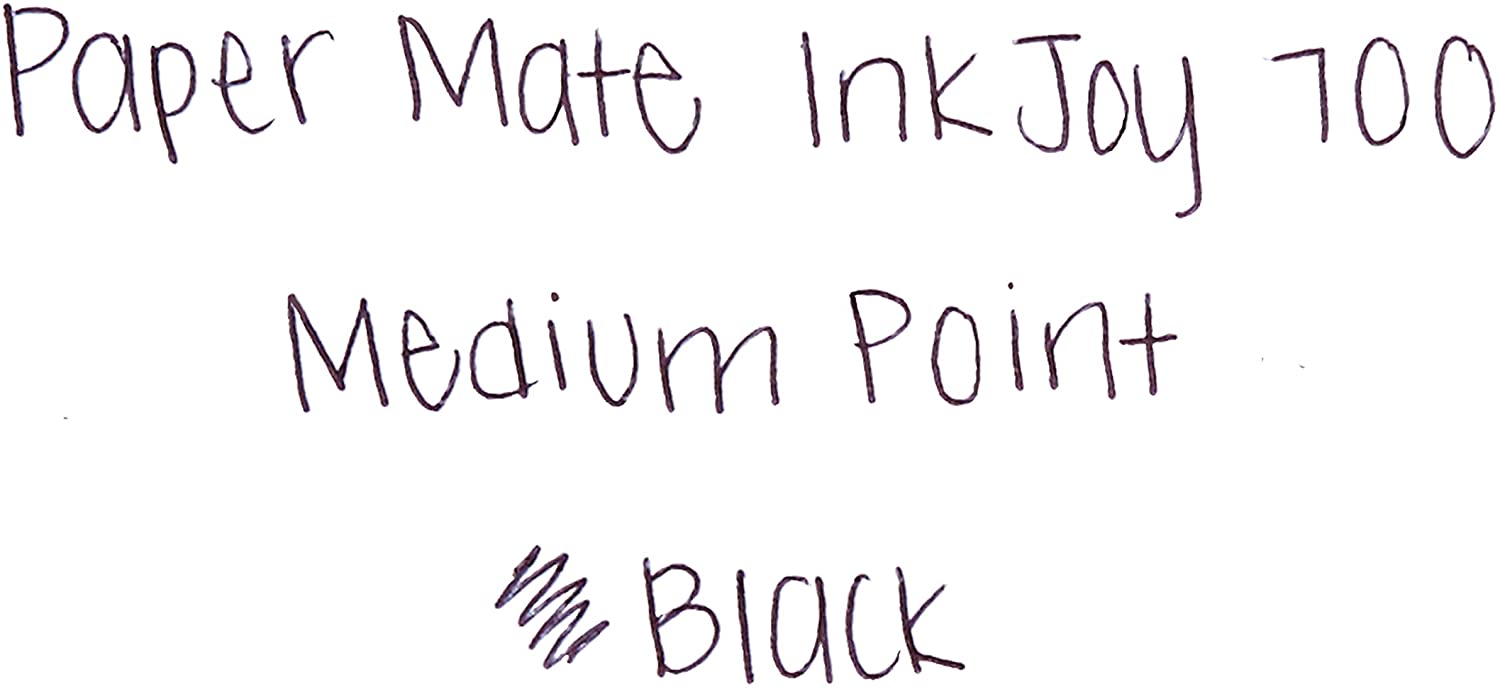 Paper Mate InkJoy 700
Medium Point
Black